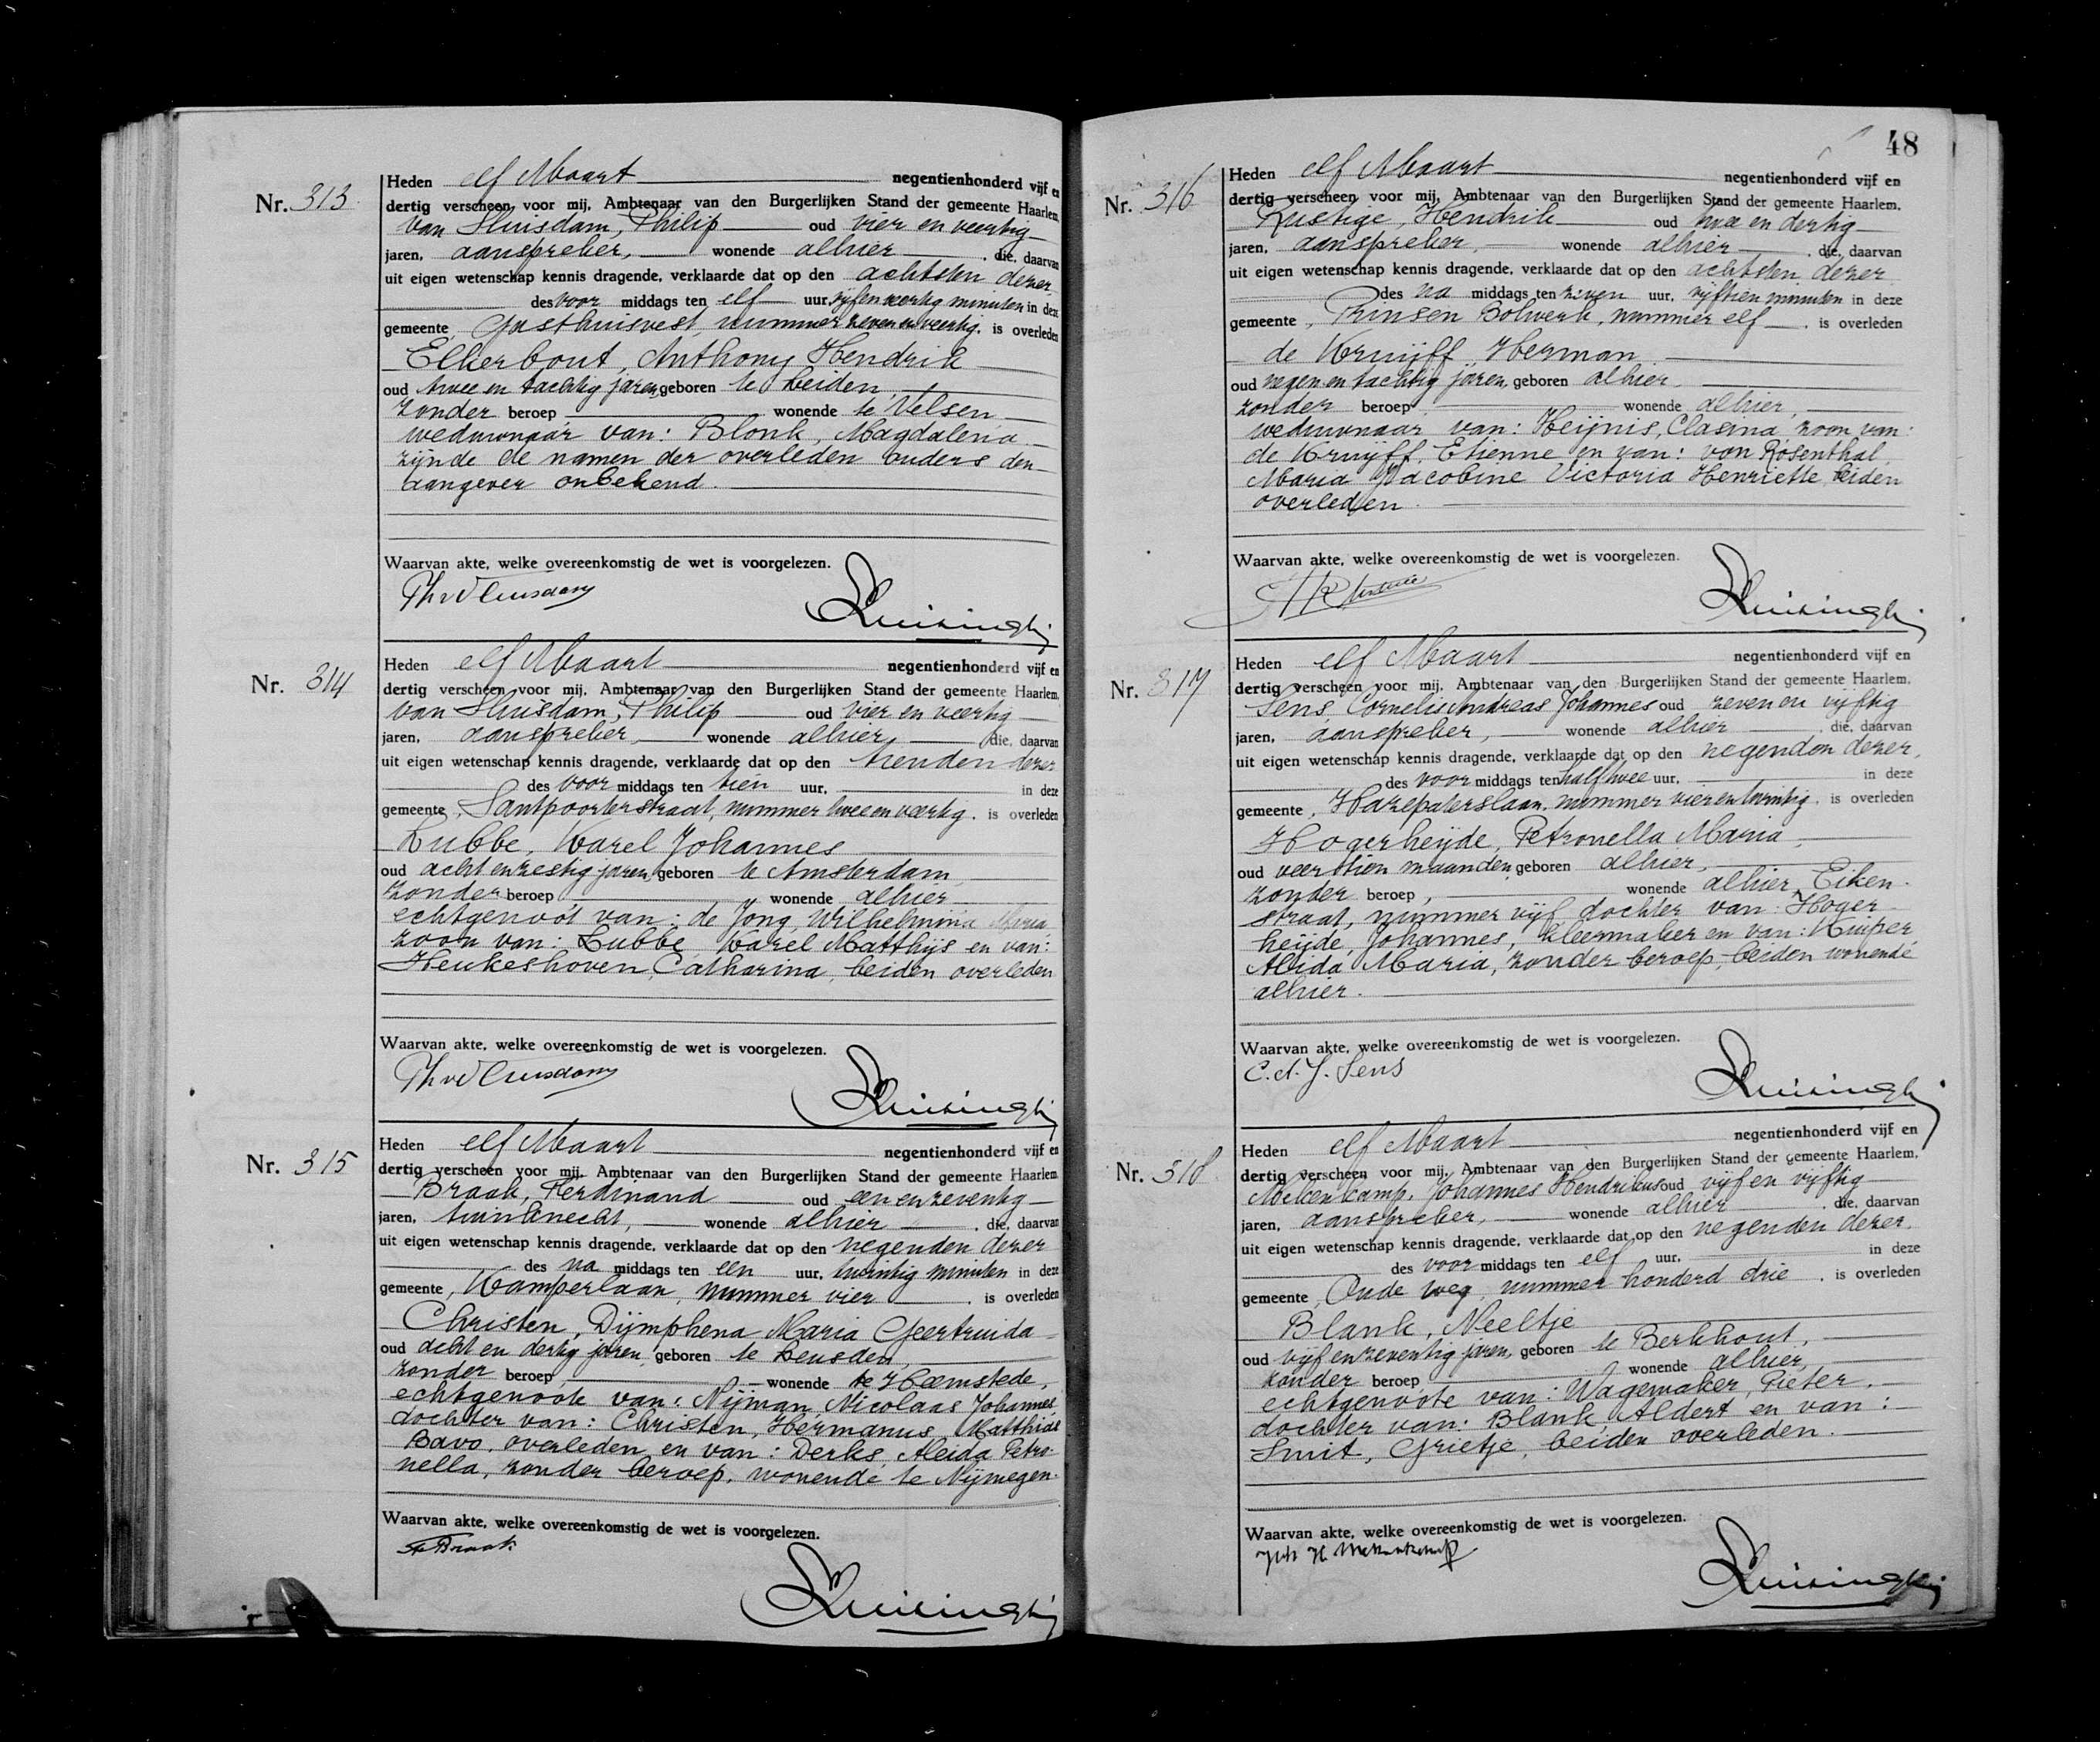 Nr. 313
Heden elf Maart negentienhonderd vijf en
dertig verscheen voor mij, Ambtenaar van den Burgerlijken Stand der gemeente Haarlem,
van Sluisdam, Philip oud vier en veertig
jaren, aanspreker, wonende alhier, die, daarvan
uit eigen wetenschap kennis dragende, verklaarde dat op den achtsten dezer
des voor middags ten elf uur, vijf en veertig minuten in deze
gemeente, Gasthuisvest, nummer zeven en veertig, is overleden
Elkerbout, Anthony Hendrik
oud twee en tachtig jaren, geboren te Leiden,
zonder beroep, wonende te Velsen
weduwnaar van: Blonk, Magdalena
zijnde de namen der overleden ouders den
aangever onbekend.
Waarvan akte, welke overeenkomstig de wet is voorgelezen.
Nr. 314
Heden elf Maart negentienhonderd vijf en
dertig verscheen voor mij, Ambtenaar van den Burgerlijken Stand der gemeente Haarlem,
van Sluisdam, Philip oud vier en veertig
jaren, aanspreker, wonende alhier, die, daarvan
uit eigen wetenschap kennis dragende, verklaarde dat op den tienden dezer
des voor middags ten tien uur, in deze
gemeente, Santpoorterstraat, nummer twee en veertig, is overleden
Lubbe, Karel Johannes
oud acht en zestig jaren, geboren te Amsterdam,
zonder beroep, wonende alhier
echtgenoot van: de Jong, Wilhelmina Maria
zoon van: Lubbe, Karel Matthijs en van:
Heukeshoven, Catharina, beiden overleden
Waarvan akte, welke overeenkomstig de wet is voorgelezen.
Nr. 315
Heden elf Maart negentienhonderd vijf en
dertig verscheen voor mij, Ambtenaar van den Burgerlijken Stand der gemeente Haarlem,
Braak, Ferdinand oud een en zeventig
jaren, tuinknecht, wonende alhier, die, daarvan
uit eigen wetenschap kennis dragende, verklaarde dat op den negenden dezer
des na middags ten een uur, twintig minuten in deze
gemeente, Kamperlaan, nummer vier, is overleden
Christen, Dijmphena Maria Geertruida
oud acht en dertig jaren, geboren te Leusden,
zonder beroep, wonende te Heemstede,
echtgenoote van: Nijman, Nicolaas Johannes,
dochter van: Christen, Hermanus Matthias
Bavo, overleden en van: Derks, Aleida Petro-
nella, zonder beroep, wonende te Nijmegen.
Waarvan akte, welke overeenkomstig de wet is voorgelezen.
F Braak
48
Nr. 316
Heden elf Maart negentienhonderd vijf en
dertig verscheen voor mij, Ambtenaar van den Burgerlijken Stand der gemeente Haarlem,
Rustige, Hendrik oud twee en dertig
jaren, aanspreker, wonende alhier, die, daarvan
uit eigen wetenschap kennis dragende, verklaarde dat op den achtsten dezer
des na middags ten zeven uur, vijftien minuten in deze
gemeente, Prinsen Bolwerk, nummer elf, is overleden
de Kruijff, Herman
oud negen en tachtig jaren, geboren alhier
zonder beroep, wonende alhier,
weduwnaar van: Heijnis, Clasina, zoon van:
de Kruijff, Etienne en van: von Rosenthal,
Maria Jacobine Victoria Henriette, beiden
overleden.
Waarvan akte, welke overeenkomstig de wet is voorgelezen.
Nr. 317
Heden elf Maart negentienhonderd vijf en
dertig verscheen voor mij, Ambtenaar van den Burgerlijken Stand der gemeente Haarlem,
Sens, Cornelis Andreas Johannes oud zeven en vijftig
jaren, aanspreker, wonende alhier, die, daarvan
uit eigen wetenschap kennis dragende, verklaarde dat op den negenden dezer,
des voor middags ten half twee uur, in deze
gemeente, Hazepaterslaan, nummer vier en twintig, is overleden
Hogerheijde, Petronella Maria,
oud veertien maanden, geboren alhier,
zonder beroep, wonende alhier, Eiken-
straat, nummer vijf, dochter van: Hoger-
heijde, Johannes, kleermaker en van: Kuiper
Alida Maria, zonder beroep, beiden wonende
alhier.
Waarvan akte, welke overeenkomstig de wet is voorgelezen.
C. A. J. Sens
Nr. 318
Heden elf Maart negentienhonderd vijf en
dertig verscheen voor mij, Ambtenaar van den Burgerlijken Stand der gemeente Haarlem,
Mekenkamp, Johannes Hendrikus oud vijf en vijftig
jaren, aanspreker, wonende alhier, die, daarvan
uit eigen wetenschap kennis dragende, verklaarde dat op den negenden dezer,
des voor middags ten elf uur, in deze
gemeente, Oude weg, nummer honderd drie, is overleden
Blank, Neeltje
oud vijf en zeventig jaren, geboren te Berkhout,
zonder beroep, wonende alhier,
echtgenoote van: Wagemaker, Pieter,
dochter van: Blank, Aldert en van:
Smit, Grietje, beiden overleden.
Waarvan akte, welke overeenkomstig de wet is voorgelezen.